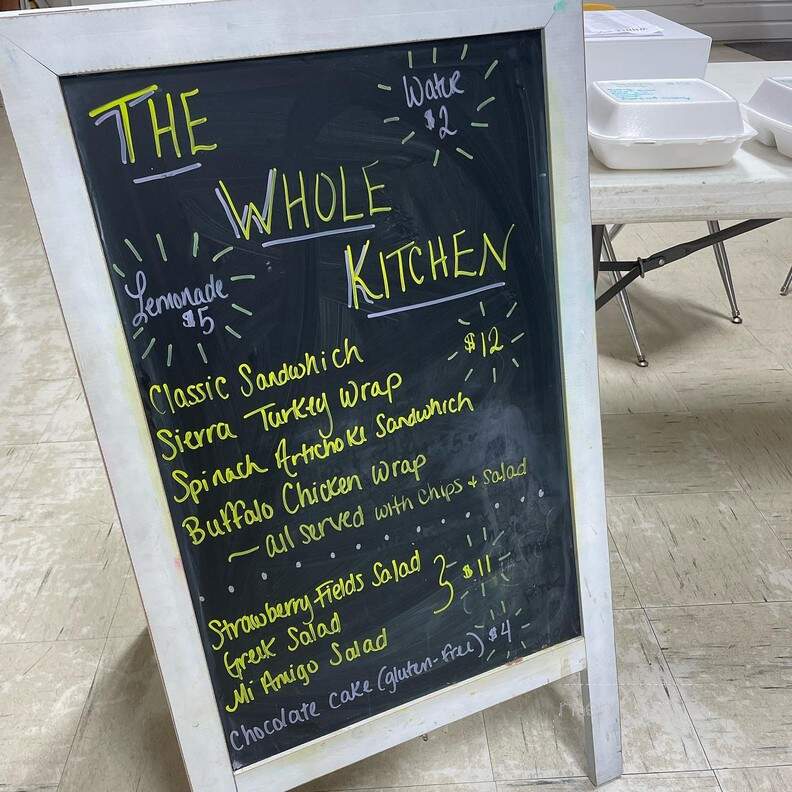 THE
Water
$2
WHOLE
KITCHEN
Lemonade
$5
Classic Sandwhich $12
Sierra Turkey Wrap
Spinach Artichoke Sandwhich
Buffalo Chicken Wrap
~ all served with chips + salad
Strawberry Fields Salad
Greek Salad } $11
Mi Amigo Salad
Chocolate Cake (gluten-free) $4